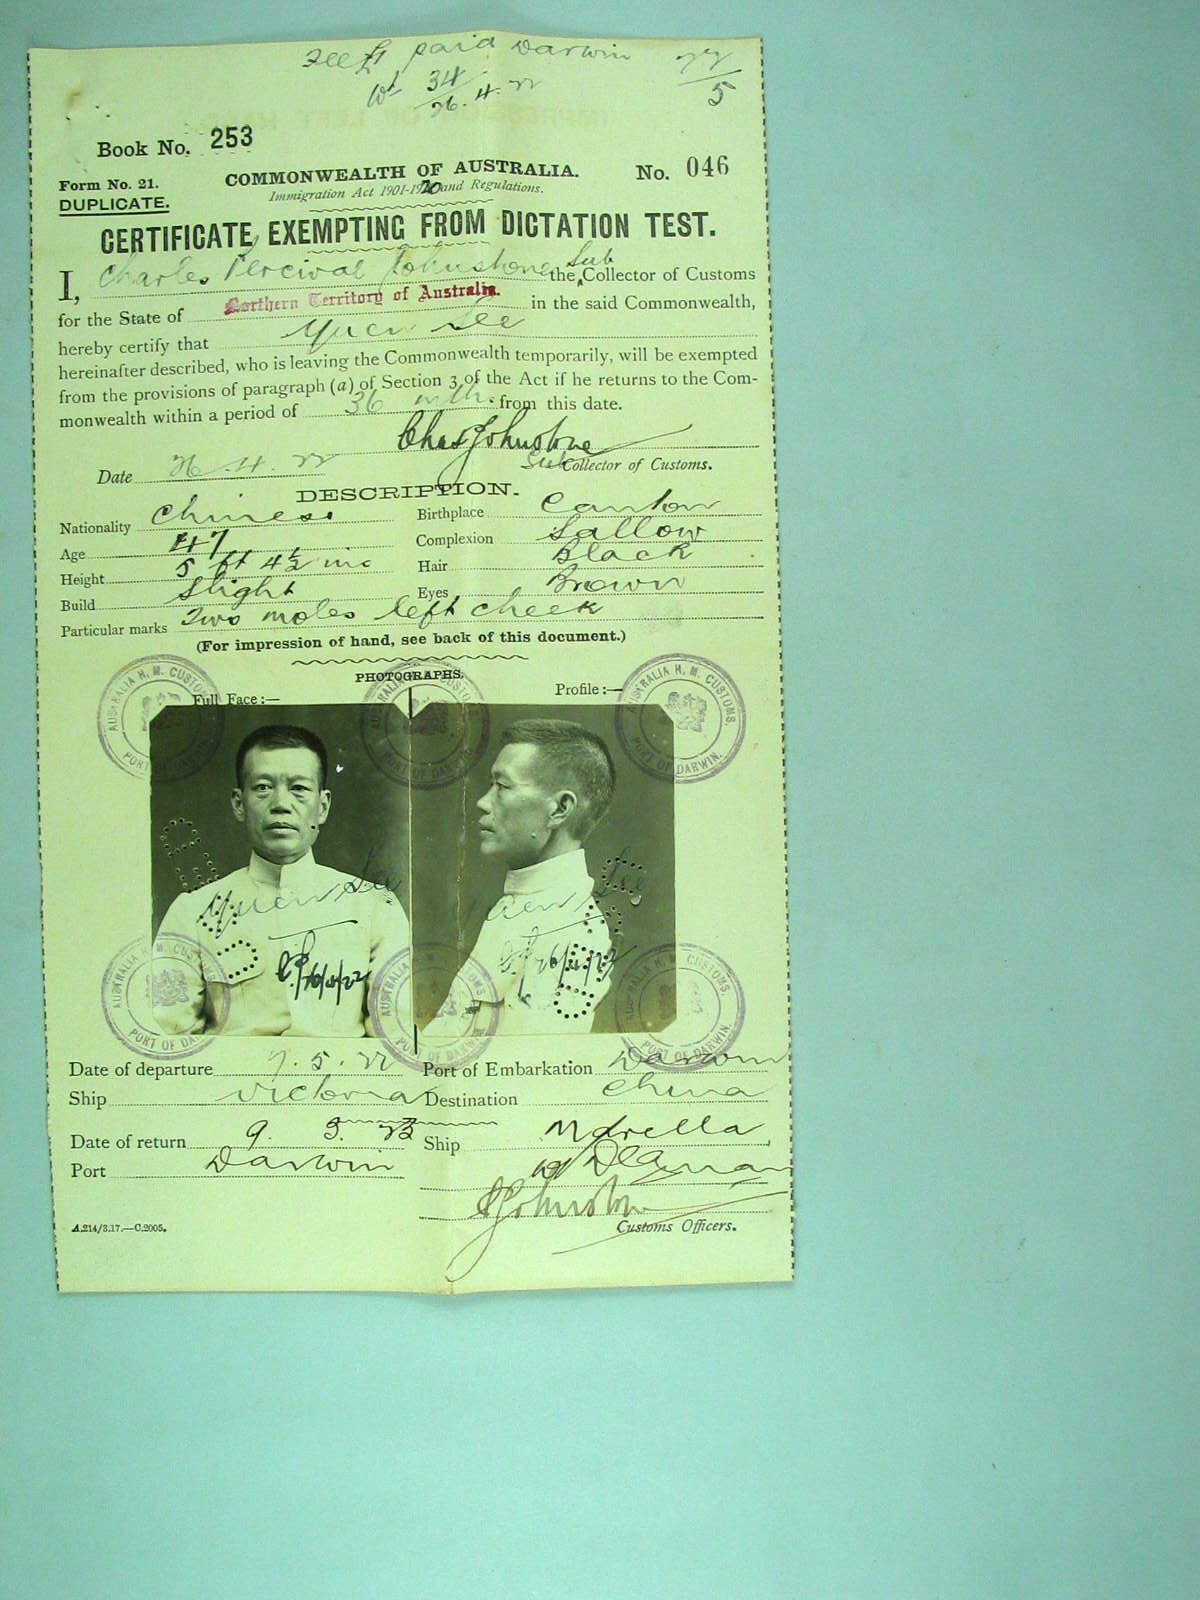 Fee £1 paid Darwin 22/5
34
26.4.22
Book No. 253
Form No. 21. COMMONWEALTH OF AUSTRALIA. No. 046
DUPLICATE. Immigration Act 1901-1920 and Regulations.
CERTIFICATE EXEMPTING FROM DICTATION TEST.
I, Charles Percival Johnstone the Sub Collector of Customs
for the State of Northern Territory of Australia. in the said Commonwealth,
hereby certify that Yuen See
hereinafter described, who is leaving the Commonwealth temporarily, will be exempted
from the provisions of paragraph (a) of Section 3 of the Act if he returns to the Com-
monwealth within a period of 36 mths. from this date.
Chas Johnstone
Date 26.4.22 Sub Collector of Customs.
DESCRIPTION.
Nationality Chinese Birthplace Canton
Age 47 Complexion Sallow
Height 5 ft 4½ ins Hair Black
Build Slight Eyes Brown
Particular marks Two moles left cheek
(For impression of hand, see back of this document.)
PHOTOGRAPHS.
Full Face:— Profile:—
AUSTRALIA H. M. CUSTOMS. PORT OF DARWIN.
Yuen See
Yuen See
26/4/22
26/4/22
Date of departure 7.5.22 Port of Embarkation Darwin
Ship Victoria Destination China
Date of return 9. 3. 23 Ship Mdrella
Port Darwin
CJohnstone
A.214/3.17.—C.2005. Customs Officers.